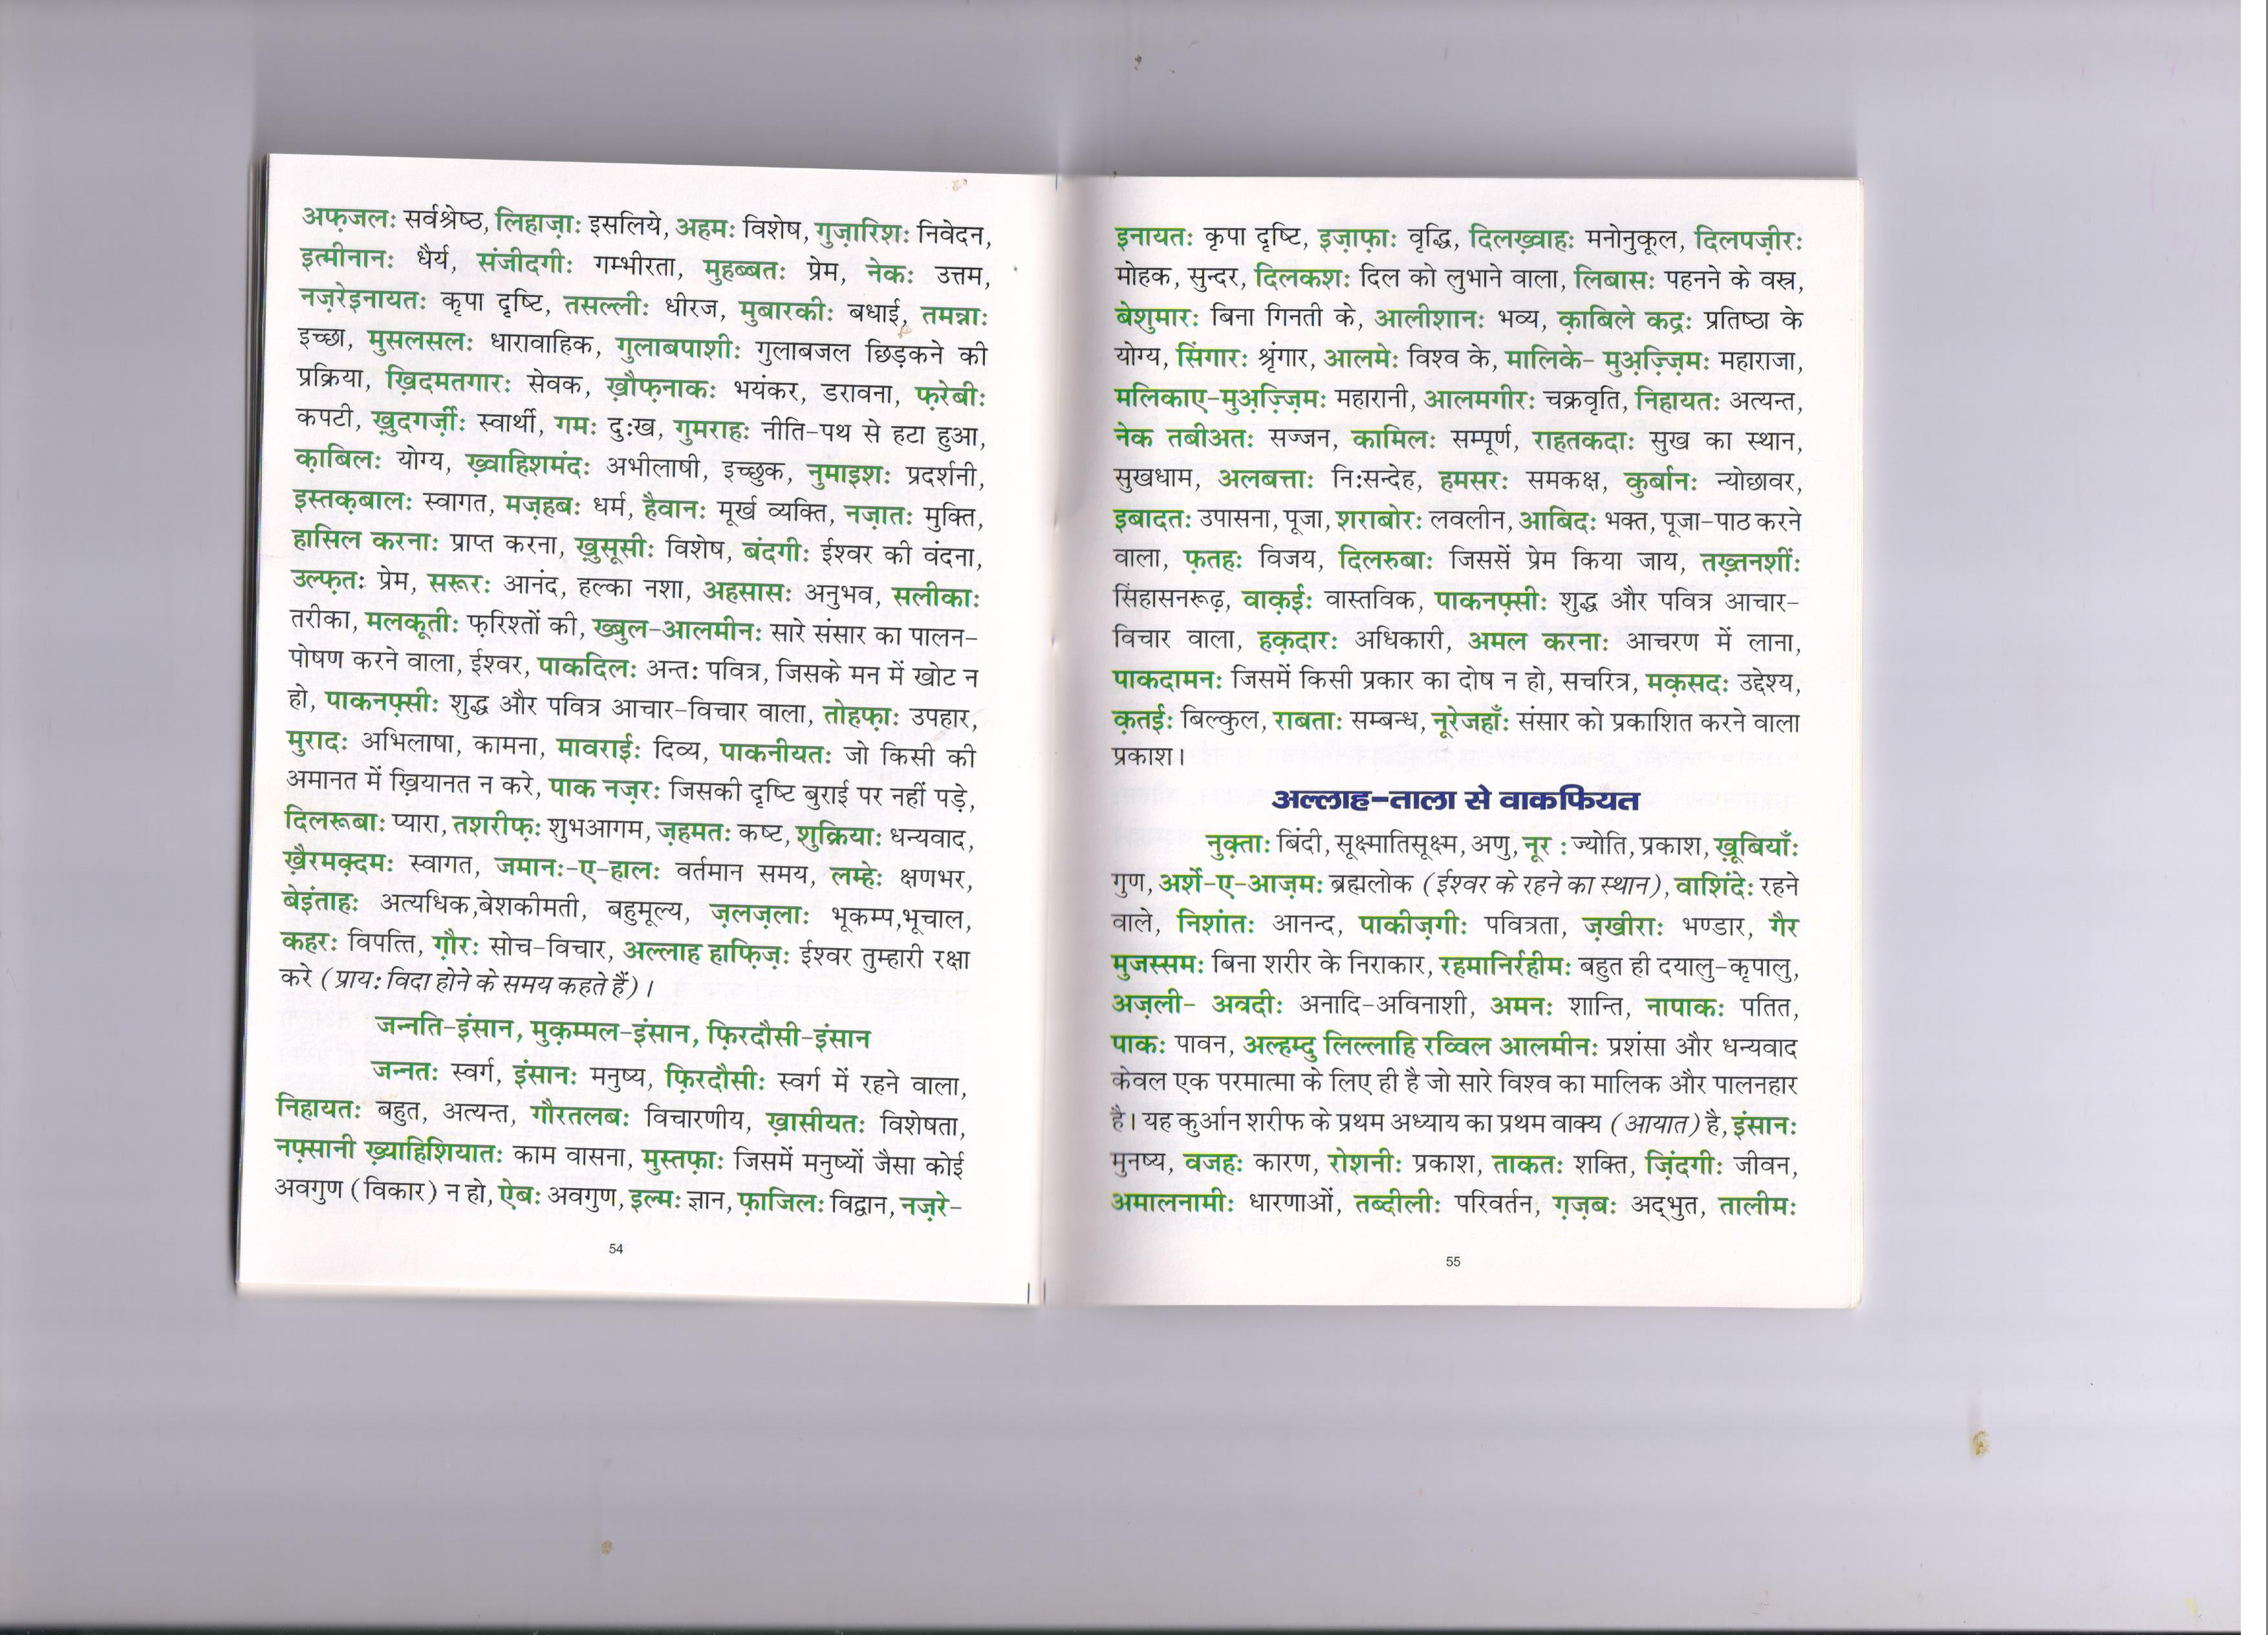 अफ़जलः सर्वश्रेष्ठ, लिहाज़ाः इसलिये, अहमः विशेष, गुज़ारिशः निवेदन,
इत्मीनानः धैर्य, संजीदगीः गम्भीरता, मुहब्बतः प्रेम, नेकः उत्तम,
नज़रेइनायतः कृपा दृष्टि, तसल्लीः धीरज, मुबारकीः बधाई, तमन्नाः
इच्छा, मुसलसलः धारावाहिक, गुलाबपाशीः गुलाबजल छिड़कने की
प्रक्रिया, ख़िदमतगारः सेवक, ख़ौफ़नाकः भयंकर, डरावना, फ़रेबीः
कपटी, ख़ुदगर्ज़ीः स्वार्थी, गमः दुःख, गुमराहः नीति-पथ से हटा हुआ,
क़ाबिलः योग्य, ख़्वाहिशमंदः अभीलाषी, इच्छुक, नुमाइशः प्रदर्शनी,
इस्तक़बालः स्वागत, मज़हबः धर्म, हैवानः मूर्ख व्यक्ति, नज़ातः मुक्ति,
हासिल करनाः प्राप्त करना, ख़ुसूसीः विशेष, बंदगीः ईश्वर की वंदना,
उल्फ़तः प्रेम, सरूरः आनंद, हल्का नशा, अहसासः अनुभव, सलीकाः
तरीका, मलकूतीः फ़रिश्तों की, ख्बुल-आलमीनः सारे संसार का पालन-
पोषण करने वाला, ईश्वर, पाकदिलः अन्तः पवित्र, जिसके मन में खोट न
हो, पाकनफ़्सीः शुद्ध और पवित्र आचार-विचार वाला, तोहफ़ाः उपहार,
मुरादः अभिलाषा, कामना, मावराईः दिव्य, पाकनीयतः जो किसी की
अमानत में ख़ियानत न करे, पाक नज़रः जिसकी दृष्टि बुराई पर नहीं पड़े,
दिलरूबाः प्यारा, तशरीफ़ः शुभआगम, ज़हमतः कष्ट, शुक्रियाः धन्यवाद,
ख़ैरमक़्दमः स्वागत, जमानः-ए-हालः वर्तमान समय, लम्हेः क्षणभर,
बेइंताहः अत्यधिक,बेशकीमती, बहुमूल्य, ज़लज़लाः भूकम्प,भूचाल,
कहरः विपत्ति, ग़ौरः सोच-विचार, अल्लाह हाफ़िज़ः ईश्वर तुम्हारी रक्षा
करे (प्रायः विदा होने के समय कहते हैं)।
जन्नति-इंसान, मुक़म्मल-इंसान, फ़िरदौसी-इंसान
जन्नतः स्वर्ग, इंसानः मनुष्य, फ़िरदौसीः स्वर्ग में रहने वाला,
निहायतः बहुत, अत्यन्त, गौरतलबः विचारणीय, ख़ासीयतः विशेषता,
नफ़्सानी ख़्याहिशियातः काम वासना, मुस्तफ़ाः जिसमें मनुष्यों जैसा कोई
अवगुण (विकार) न हो, ऐबः अवगुण, इल्मः ज्ञान, फ़ाजिलः विद्वान, नज़रे-
54
इनायतः कृपा दृष्टि, इज़ाफ़ाः वृद्धि, दिलख़्वाहः मनोनुकूल, दिलपज़ीरः
मोहक, सुन्दर, दिलकशः दिल को लुभाने वाला, लिबासः पहनने के वस्त्र,
बेशुमारः बिना गिनती के, आलीशानः भव्य, क़ाबिले कद्रः प्रतिष्ठा के
योग्य, सिंगारः श्रृंगार, आलमेः विश्व के, मालिके- मुअज़्ज़िमः महाराजा,
मलिकाए-मुअज़्ज़िमः महारानी, आलमगीरः चक्रवृति, निहायतः अत्यन्त,
नेक तबीअतः सज्जन, कामिलः सम्पूर्ण, राहतकदाः सुख का स्थान,
सुखधाम, अलबत्ताः निःसन्देह, हमसरः समकक्ष, कुर्बानः न्योछावर,
इबादतः उपासना, पूजा, शराबोरः लवलीन, आबिदः भक्त, पूजा-पाठ करने
वाला, फ़तहः विजय, दिलरुबाः जिससें प्रेम किया जाय, तख़्तनशींः
सिंहासनरूढ़, वाक़ईः वास्तविक, पाकनफ़्सीः शुद्ध और पवित्र आचार-
विचार वाला, हक़दारः अधिकारी, अमल करनाः आचरण में लाना,
पाकदामनः जिसमें किसी प्रकार का दोष न हो, सचरित्र, मक़सदः उद्देश्य,
क़तईः बिल्कुल, राबताः सम्बन्ध, नूरेजहाँः संसार को प्रकाशित करने वाला
प्रकाश।
अल्लाह-ताला से वाकफियत
नुक़्ताः बिंदी, सूक्ष्मातिसूक्ष्म, अणु, नूर : ज्योति, प्रकाश, ख़ूबियाँः
गुण, अर्शे-ए-आज़मः ब्रह्मलोक (ईश्वर के रहने का स्थान), वाशिंदेः रहने
वाले, निशांतः आनन्द, पाकीज़गीः पवित्रता, ज़खीराः भण्डार, गैर
मुजस्समः बिना शरीर के निराकार, रहमानिर्रहीमः बहुत ही दयालु-कृपालु,
अज़ली- अवदीः अनादि-अविनाशी, अमनः शान्ति, नापाकः पतित,
पाकः पावन, अल्हम्दु लिल्लाहि रव्विल आलमीनः प्रशंसा और धन्यवाद
केवल एक परमात्मा के लिए ही है जो सारे विश्व का मालिक और पालनहार
है। यह कुर्आन शरीफ के प्रथम अध्याय का प्रथम वाक्य (आयात) है, इंसानः
मुनष्य, वजहः कारण, रोशनीः प्रकाश, ताकतः शक्ति, ज़िंदगीः जीवन,
अमालनामीः धारणाओं, तब्दीलीः परिवर्तन, ग़ज़बः अद्भुत, तालीमः
55